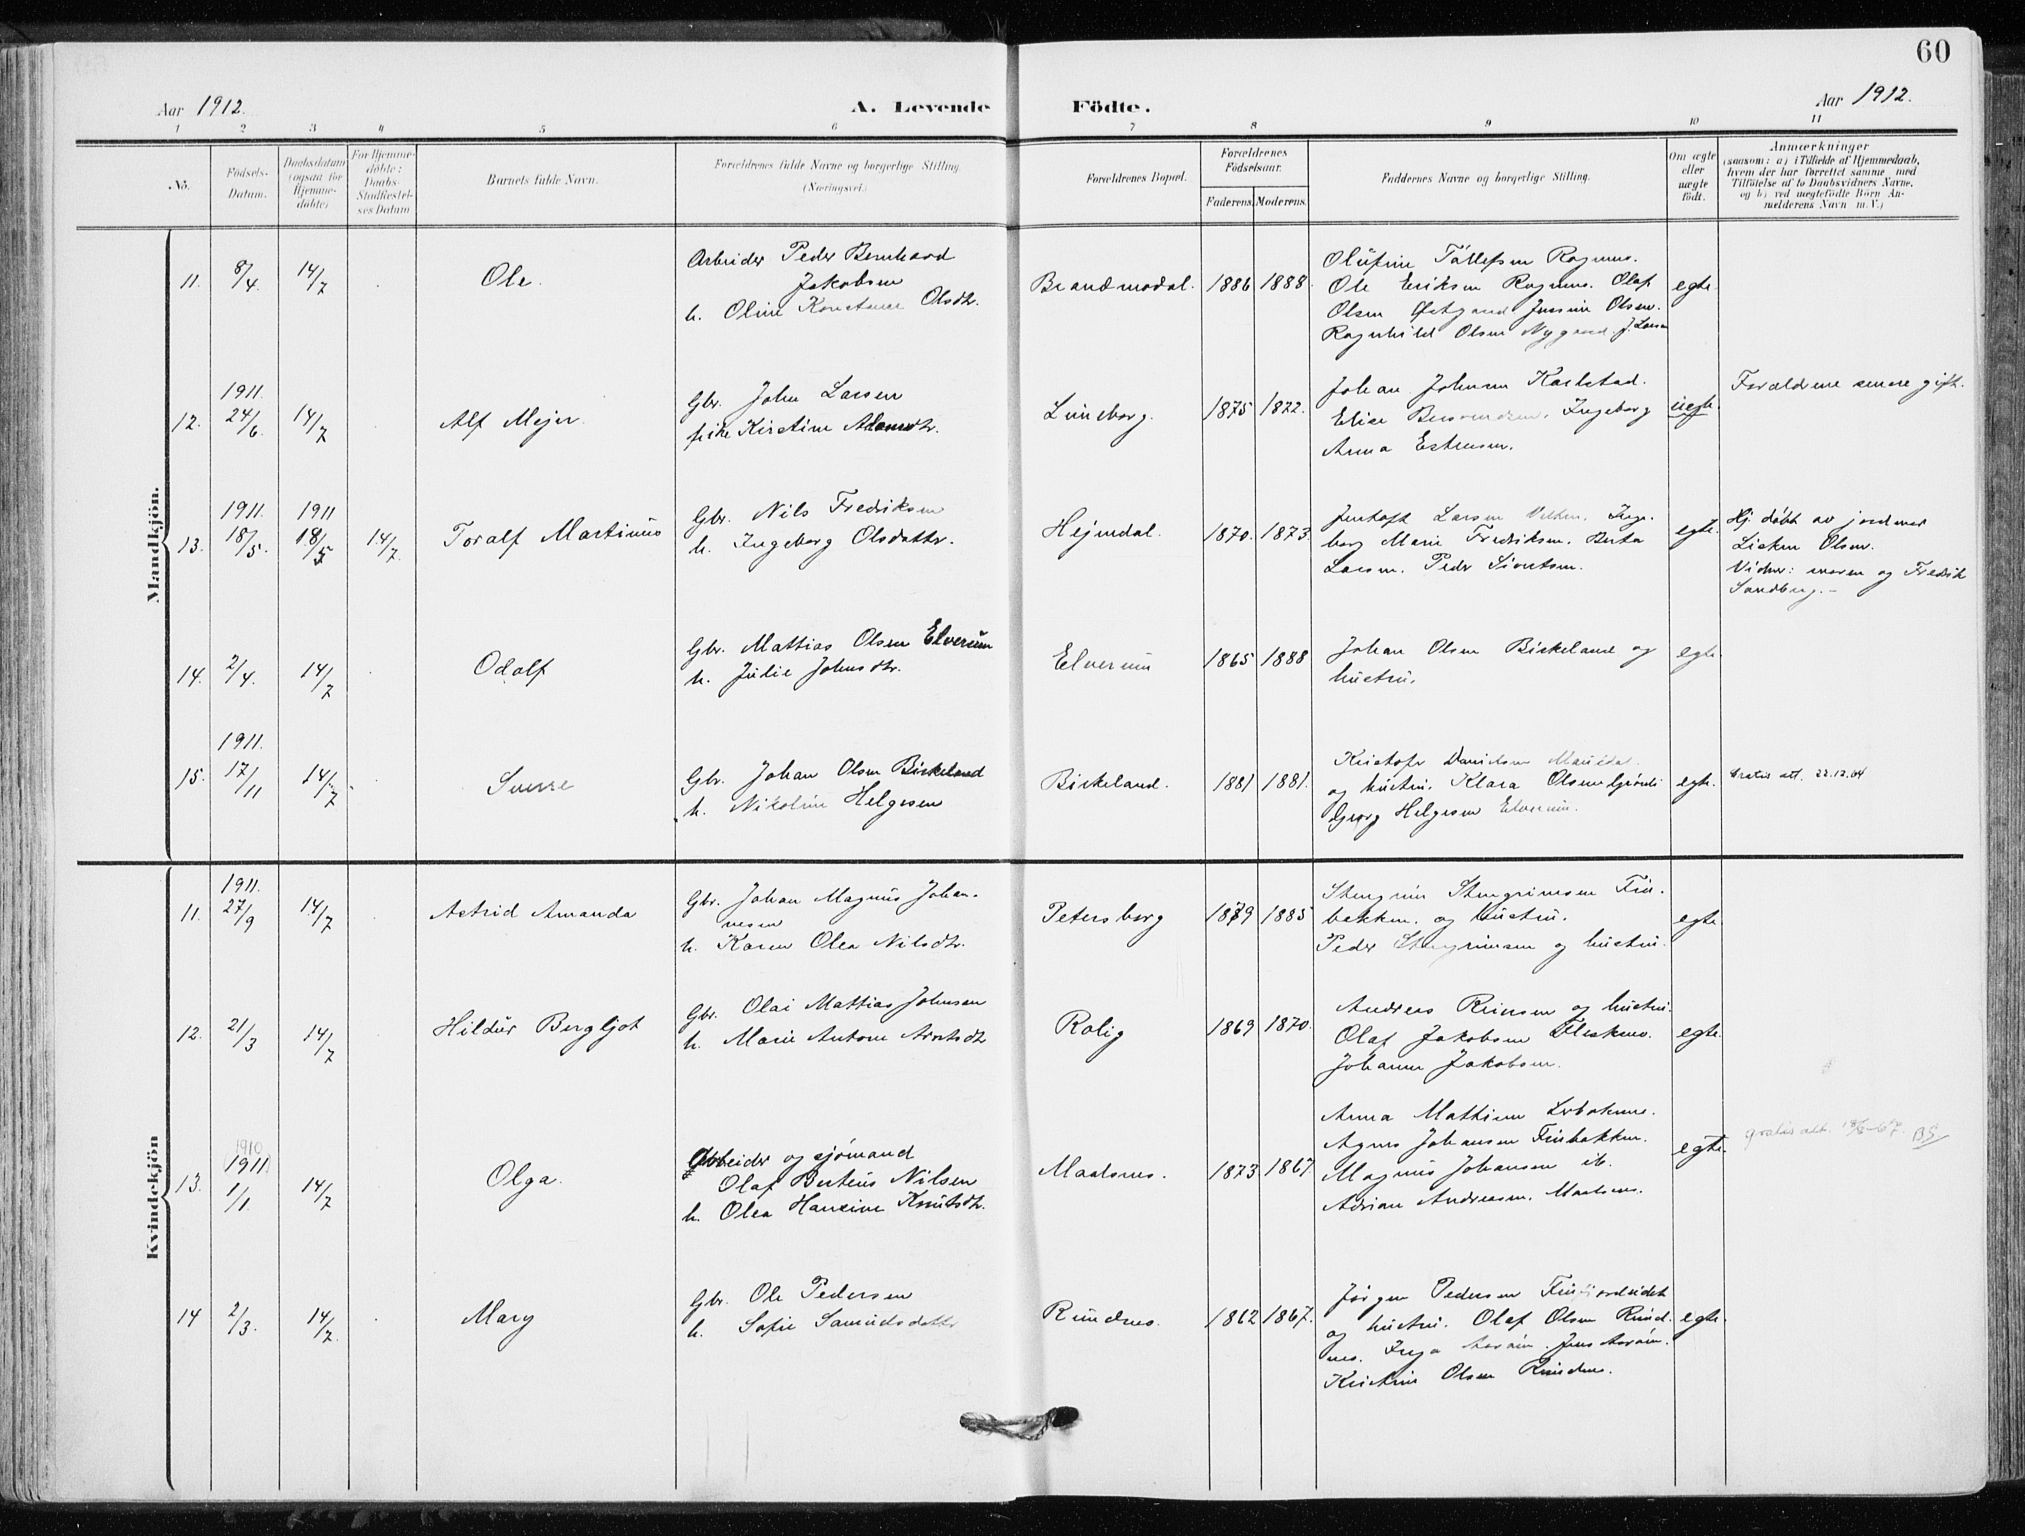 60
Aar 1912.
A. Levende Födte.
Aar 1912.
1 2 3 4 5 6 7 8 9 10 11
No.
Födsels-Datum.
Daabsdatum (ogsaa for Hjemme-döbte)
For Hjemme-döbte: Daabs-Stadfæstel-ses Datum
Barnets fulde Navn.
Forældrenes fulde Navne og borgerlige Stilling (Næringsvei.)
Forældrenes Bopæl.
Forældrenes Födselsaar.
Faderens. Moderens.
Faddernes Navne og borgerlige Stilling.
Om ægte eller uægte födt.
Anmærkninger
(saasom: a) i Tilfælde af Hjemmedaab,
hvem der har forrettet samme, med
Tilföielse af to Daabsvidners Navne,
og b) ved uægtefödte Börn An-
melderens Navn m. V.)
Mandkjön.
11. 8/4. 14/7 Ole.
Arbeider Peder Bernhard
Jakobsen
h. Oline Konstanse Olsdtr.
Brandmodal. 1886 1888.
Olufine Tollefsen Rognus.
Ole Eriksen Rognus. Olaf
Olsen Østgaard Jensine Olsen.
Ragnhild Olsen Nygaard. J. Larsen
egte.
1911.
12. 24/6. 14/7 Alf Mejer.
Gbr. John Larsen
pike Kirstine Adamsdtr.
Luneborg. 1875 1872.
Johan Johnsen Karlstad.
Elise Ingeborg
Anna Estensen.
uegte.
Forældrene senere gift.
1911. 1911
13. 18/5. 18/5 14/7. Toralf Martinus
Gbr. Nils Fredriksen
h. Ingeborg Olsdatter.
Hejmdal. 1870. 1873
Jentoft Larsen Inge-
borg Marie Fredriksen. Berta
Larsen. Peder Sivertsen.
egte.
Hj. døbt av jordmor
Lisken Olsen.
Vidner: moren og Fredrik
Sandberg. -
14. 2/4. 14/7 Odolf
Gbr. Mattias Olsen Elverum
h. Julie Johnsdtr.
Elverum 1865 1888
Johan Olsen Birkeland og
hustru.
egte.
1911.
15. 17/11 14/7. Sverre
Gbr. Johan Olsen Birkeland
h. Nikoline Helgesen
Birkeland. 1881 1881.
Kristofer Danielsen
og hustru. Klara Olsen Grønli
Georg Helgesen Elverum.
egte.
Gratis att. 22.12.64
Kvindekjön
1911.
11. 27/9 14/7 Astrid Amanda
Gbr. Johan Magnus Johan-
nesen
h. Karen Olea Nilsdtr.
Petersborg 1879 1885
Stengrim Stengrimsen Fin-
bakken. og hustru.
Peder Stengrimsen og hustru.
egte.
12. 21/3 14/7 Hildur Bergljot
Gbr. Olai Mattias Johnsen
h. Marie Antone Arntsdtr
Rolig 1869 1870.
Andreas Reinsen og hustru.
Olaf Jakobsen Fleskmo.
Johanne Jakobsen.
egte.
1910
1911
13. 1/1. 14/7 Olga.
Arbeider og sjømand
Olaf Berteus Nilsen
h. Olea Hansine Knutsdtr.
Maalsnes. 1873 1867
Anna Mathisen
Agnes Johansen Finbakken.
Magnus Johansen ib.
Adrian Andreasen. Maalsnes.
egte.
gratis att. 18/6-67. BS
14 2/3. 14/7. Mary
Gbr. Ole Pedersen
h. Sofie Samuelsdatter
Rundnes. 1862 1867.
Jørgen Pedersen Finfjordeidet
og hustru. Olaf Olsen Rund-
nes. Inga Aaraan. Jens Aaraan.
Kristine Olsen Rundnes.
egte.